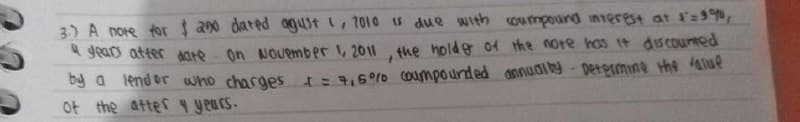 3.) A note for $ 200 dated agust 1, 2010 is due with coumpound interest at r=9%,
4 years after date on November 1, 2011, the holder of the note has it discounted
by a lendor who charges r = 7,5% coumpounded annually - Determine the value
of the after 4 years.